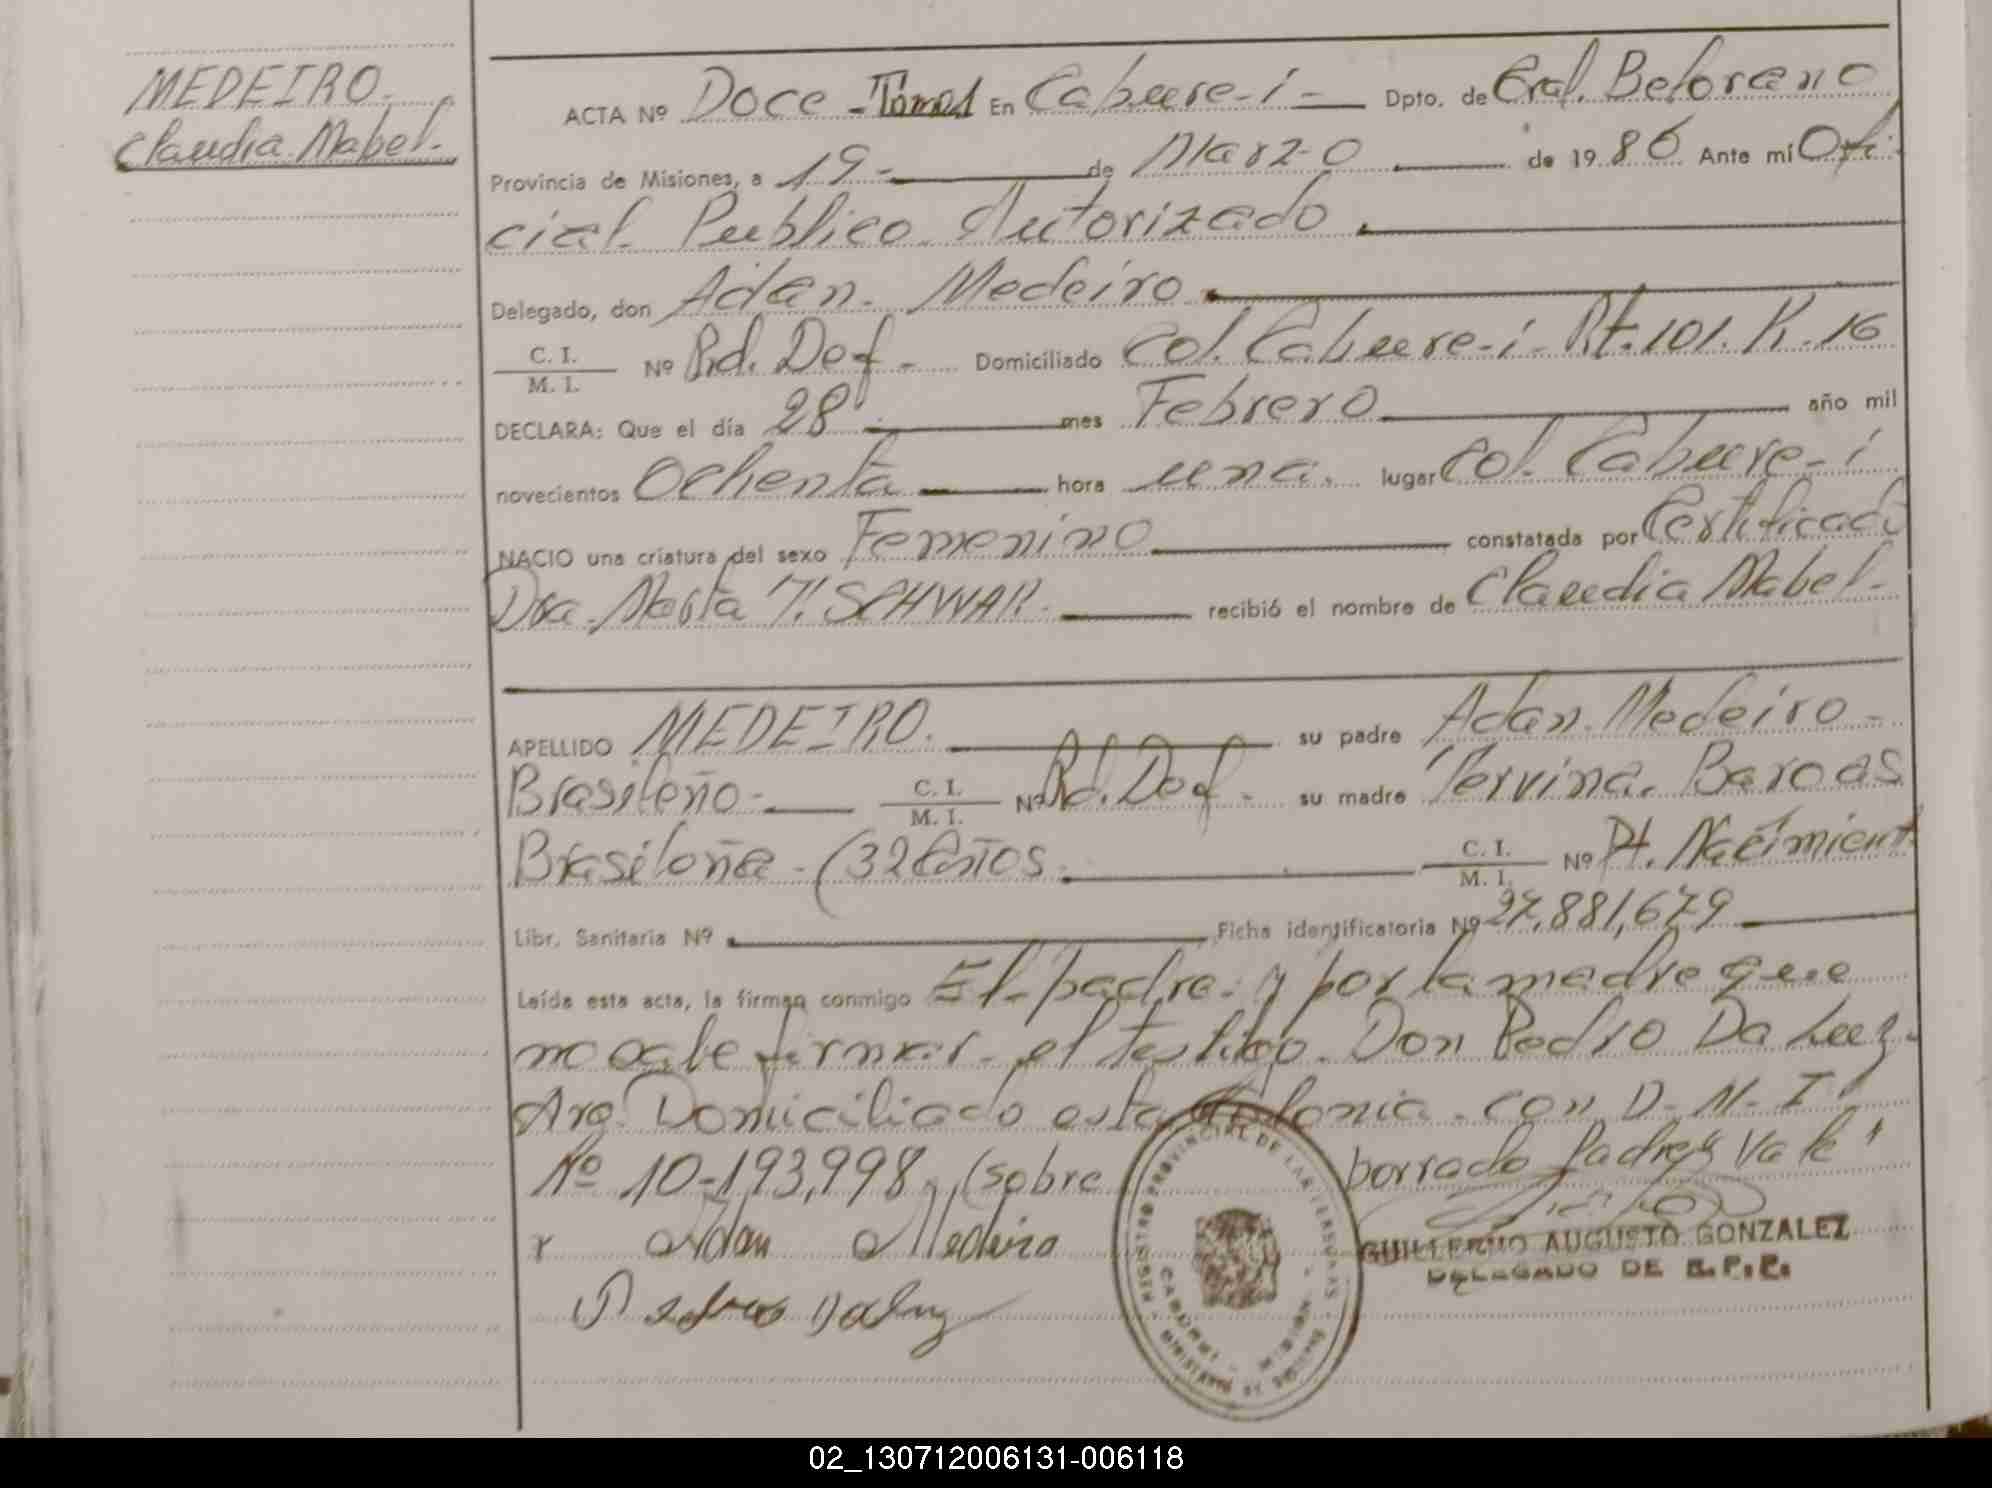 MEDEIRO.
Claudia Mabel.
ACTA Nº Doce - Tomo 1 En Cabure-i - Dpto. de Gral. Belgrano
Provincia de Misiones, a 19 - de Marzo de 1986 Ante mi Ofi
cial Publico Autorizado.
Delegado, don Adan Medeiro.
C. I.
M. I.
Nº Pd. Def - Domiciliado Col. Cabure-i - Rt. 101. K. 16
DECLARA: Que el día 28 - mes Febrero año mil
novecientos Ochenta hora una. lugar Col. Cabure-i
NACIO una criatura del sexo Femenino constatada por Certificado
Dra. Marta T. SCHWAR. recibió el nombre de Claudia Mabel -
APELLIDO MEDEIRO. su padre Adan Medeiro -
Brasileño - C. I.
M. I.
Nº Pd. Def - su madre Tervina Bargas
Brasileña - (32 años. C. I.
M. I.
Nº Pt. Nacimient
Libr. Sanitaria Nº Ficha identificatoria Nº 27,881,679
Leída esta acta, la firman conmigo El padre y por la madre que
no sabe firmar el testigo Don Pedro Da Luz -
Arg. Domiciliado esta Colonia con D-N-I
Nº 10-193,998, (sobre borrado Padre "Vale"
Adan Medeiro
Pedro Daluz
GUILLERMO AUGUSTO GONZALEZ
DELEGADO DE R.P.P.
REGISTRO PROVINCIAL DE LAS PERSONAS
CABUREI - MISIONES
02_130712006131-006118